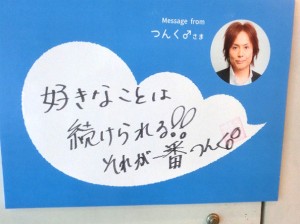 Message from
つんく♂さま
好きなことは
続けられる!!
それが一番 つんく♂